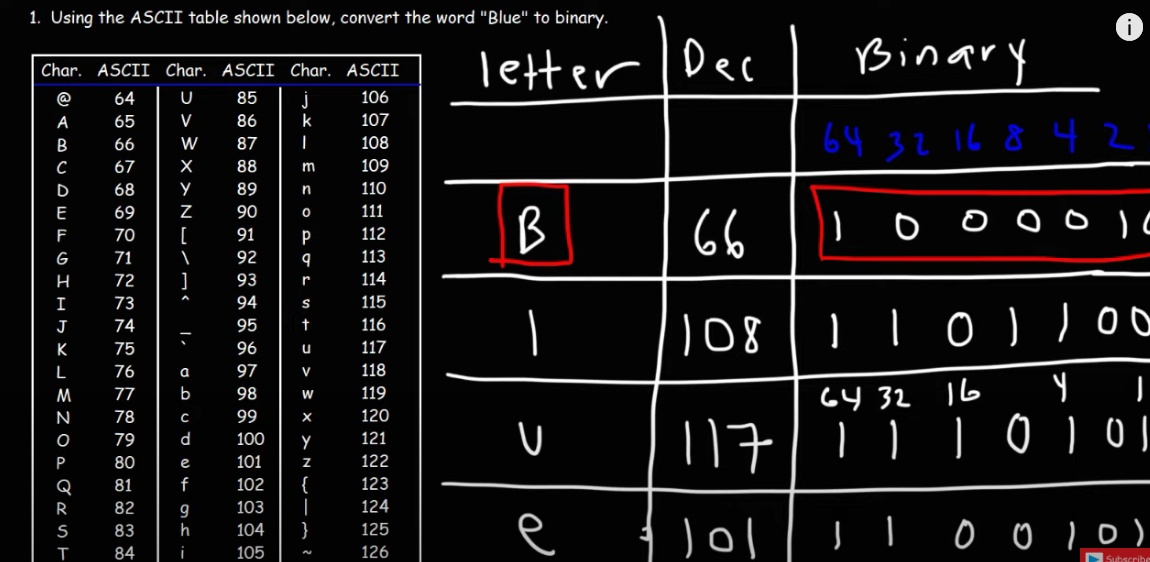 1. Using the ASCII table shown below, convert the word "Blue" to binary.
Char. ASCII Char. ASCII Char. ASCII
@ 64 U 85 j 106
A 65 V 86 k 107
B 66 W 87 l 108
C 67 X 88 m 109
D 68 Y 89 n 110
E 69 Z 90 o 111
F 70 [ 91 p 112
G 71 \ 92 q 113
H 72 ] 93 r 114
I 73 ^ 94 s 115
J 74 _ 95 t 116
K 75 ` 96 u 117
L 76 a 97 v 118
M 77 b 98 w 119
N 78 c 99 x 120
O 79 d 100 y 121
P 80 e 101 z 122
Q 81 f 102 { 123
R 82 g 103 | 124
S 83 h 104 } 125
T 84 i 105 ~ 126
letter Dec Binary
64 32 16 8 4 2
B 66 1 0 0 0 0 1 0
l 108 1 1 0 1 1 0 0
64 32 16 4 1
u 117 1 1 1 0 1 0 1
e = 101 1 1 0 0 1 0 1
i
Subscribe